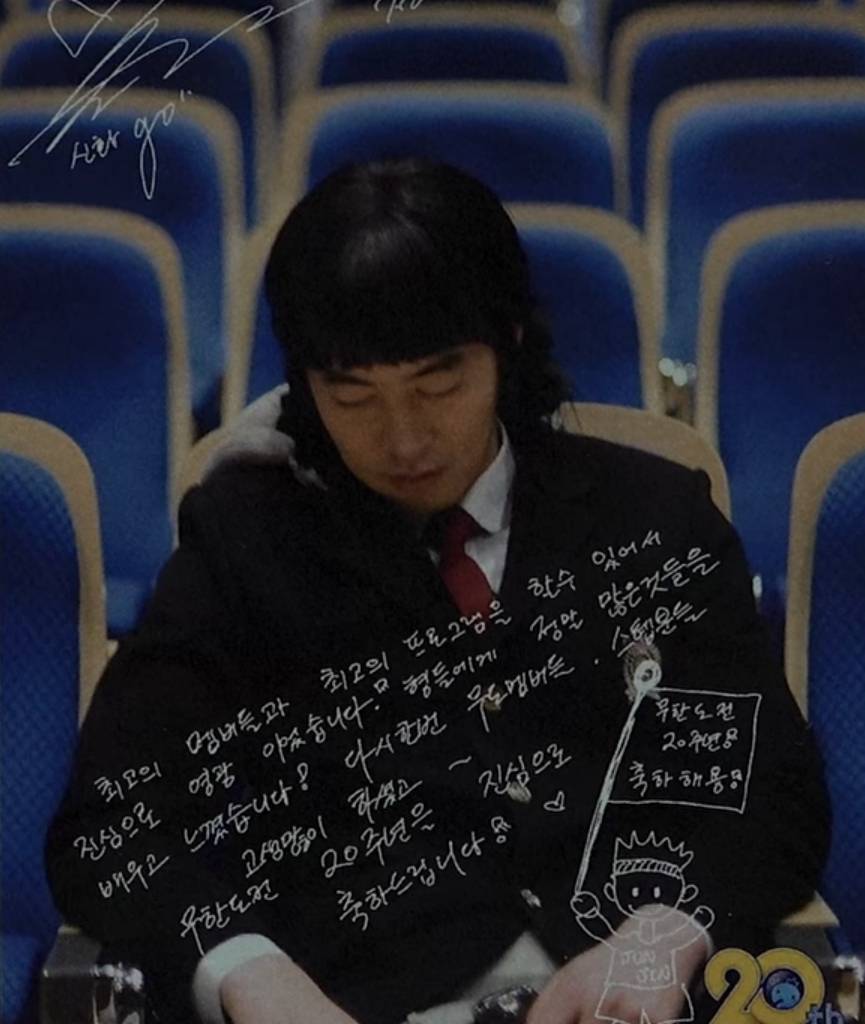 신화 go"
최고의 멤버들과 최고의 프로그램을 한수 있어서
진심으로 영광 이었습니다! 형들에게 정말 많은것들을
배우고 느꼈습니다! 다시한번 무도멤버들. 스텝분들
고생많이 하셨고 ~
무한도전 20주년을 진심으로
축하드립니다!
무한도전
20주년
축하해용!
JUN
JIN
20th